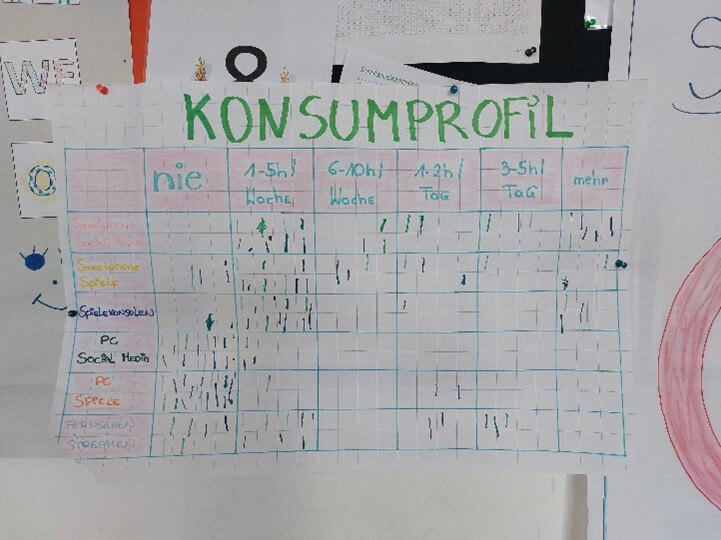 WE
O
KONSUMPROFIL
nie
1-5h/
Woche
6-10h/
Woche
1-2h/
TAG
3-5h/
TAG
mehr
Smartphone
Social Media
Smartphone
Spiele
SPIELEKONSOLEN
PC
SOCIAL MEDIA
PC
SPIELE
FERNSEHEN
STREAMEN
S